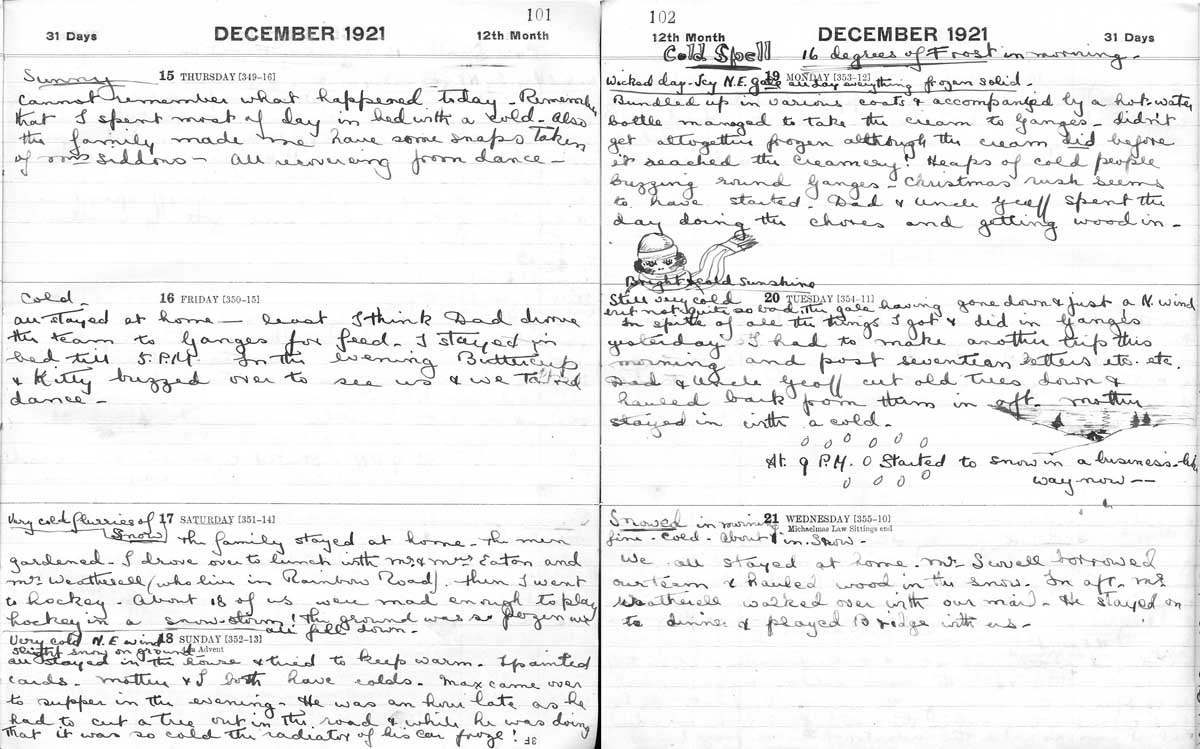 101
31 Days DECEMBER 1921 12th Month
Sunny 15 THURSDAY [349-16]
Cannot remember what happened today - Remember
that I spent most of day in bed with a cold - Also
the family made me have some snaps taken
of Mrs Siddons - All recovering from dance -
Cold - 16 FRIDAY [350-15]
All stayed at home - least I think Dad drove
the team to Ganges for feed - I stayed in
bed till 5 P.M. In the evening Buttercup
& Kitty buzzed over to see us & we talked
dance -
Very cold flurries of 17 SATURDAY [351-14]
Snow The family stayed at home - The men
gardened - I drove over to lunch with Mr & Mrs Eaton and
Mr Weatherell (who live in Rainbow Road) Then I went
to hockey - About 18 of us were mad enough to play
hockey in a snow-storm! The ground was so frozen we
all fell down -
Very cold N.E wind 18 SUNDAY [352-13]
slight snow on ground Advent
All stayed in the house & tried to keep warm - I painted
cards - Mother & I both have colds. Max came over
to supper in the evening - He was an hour late as he
had to cut a tree out in the road & while he was doing
that it was so cold the radiator of his car froze!
102
12th Month DECEMBER 1921 31 Days
Cold Spell 16 degrees of Frost in morning -
19 MONDAY [353-12]
Wicked day - Icy N.E. gale all day everything frozen solid -
Bundled up in various coats & accompanied by a hot-water
bottle managed to take the cream to Ganges - didn't
get altogether frozen although the cream did before
it reached the creamery! Heaps of cold people
buzzing round Ganges - Christmas rush seems
to have started - Dad & Uncle Geoff spent the
day doing the chores and getting wood in -
Bright & cold Sunshine
Still very cold 20 TUESDAY [354-11]
but not quite so bad, the gale having gone down & just a N. wind
In spite of all the things I got & did in Ganges
yesterday I had to make another trip this
morning and post seventeen letters etc. etc.
Dad & Uncle Geoff cut old trees down &
hauled bark from them in aft. Mother
stayed in with a cold -
At 9 P.M. Started to snow in a business-like
way now -
Snowed in morning 21 WEDNESDAY [355-10]
Michaelmas Law Sittings end
fine - cold - About 1 in. Snow -
We all stayed at home. Mr borrowed
our team & hauled wood in the snow. In aft. Mr
Weatherell walked over with our mail - He stayed on
to dinner & played Bridge with us -